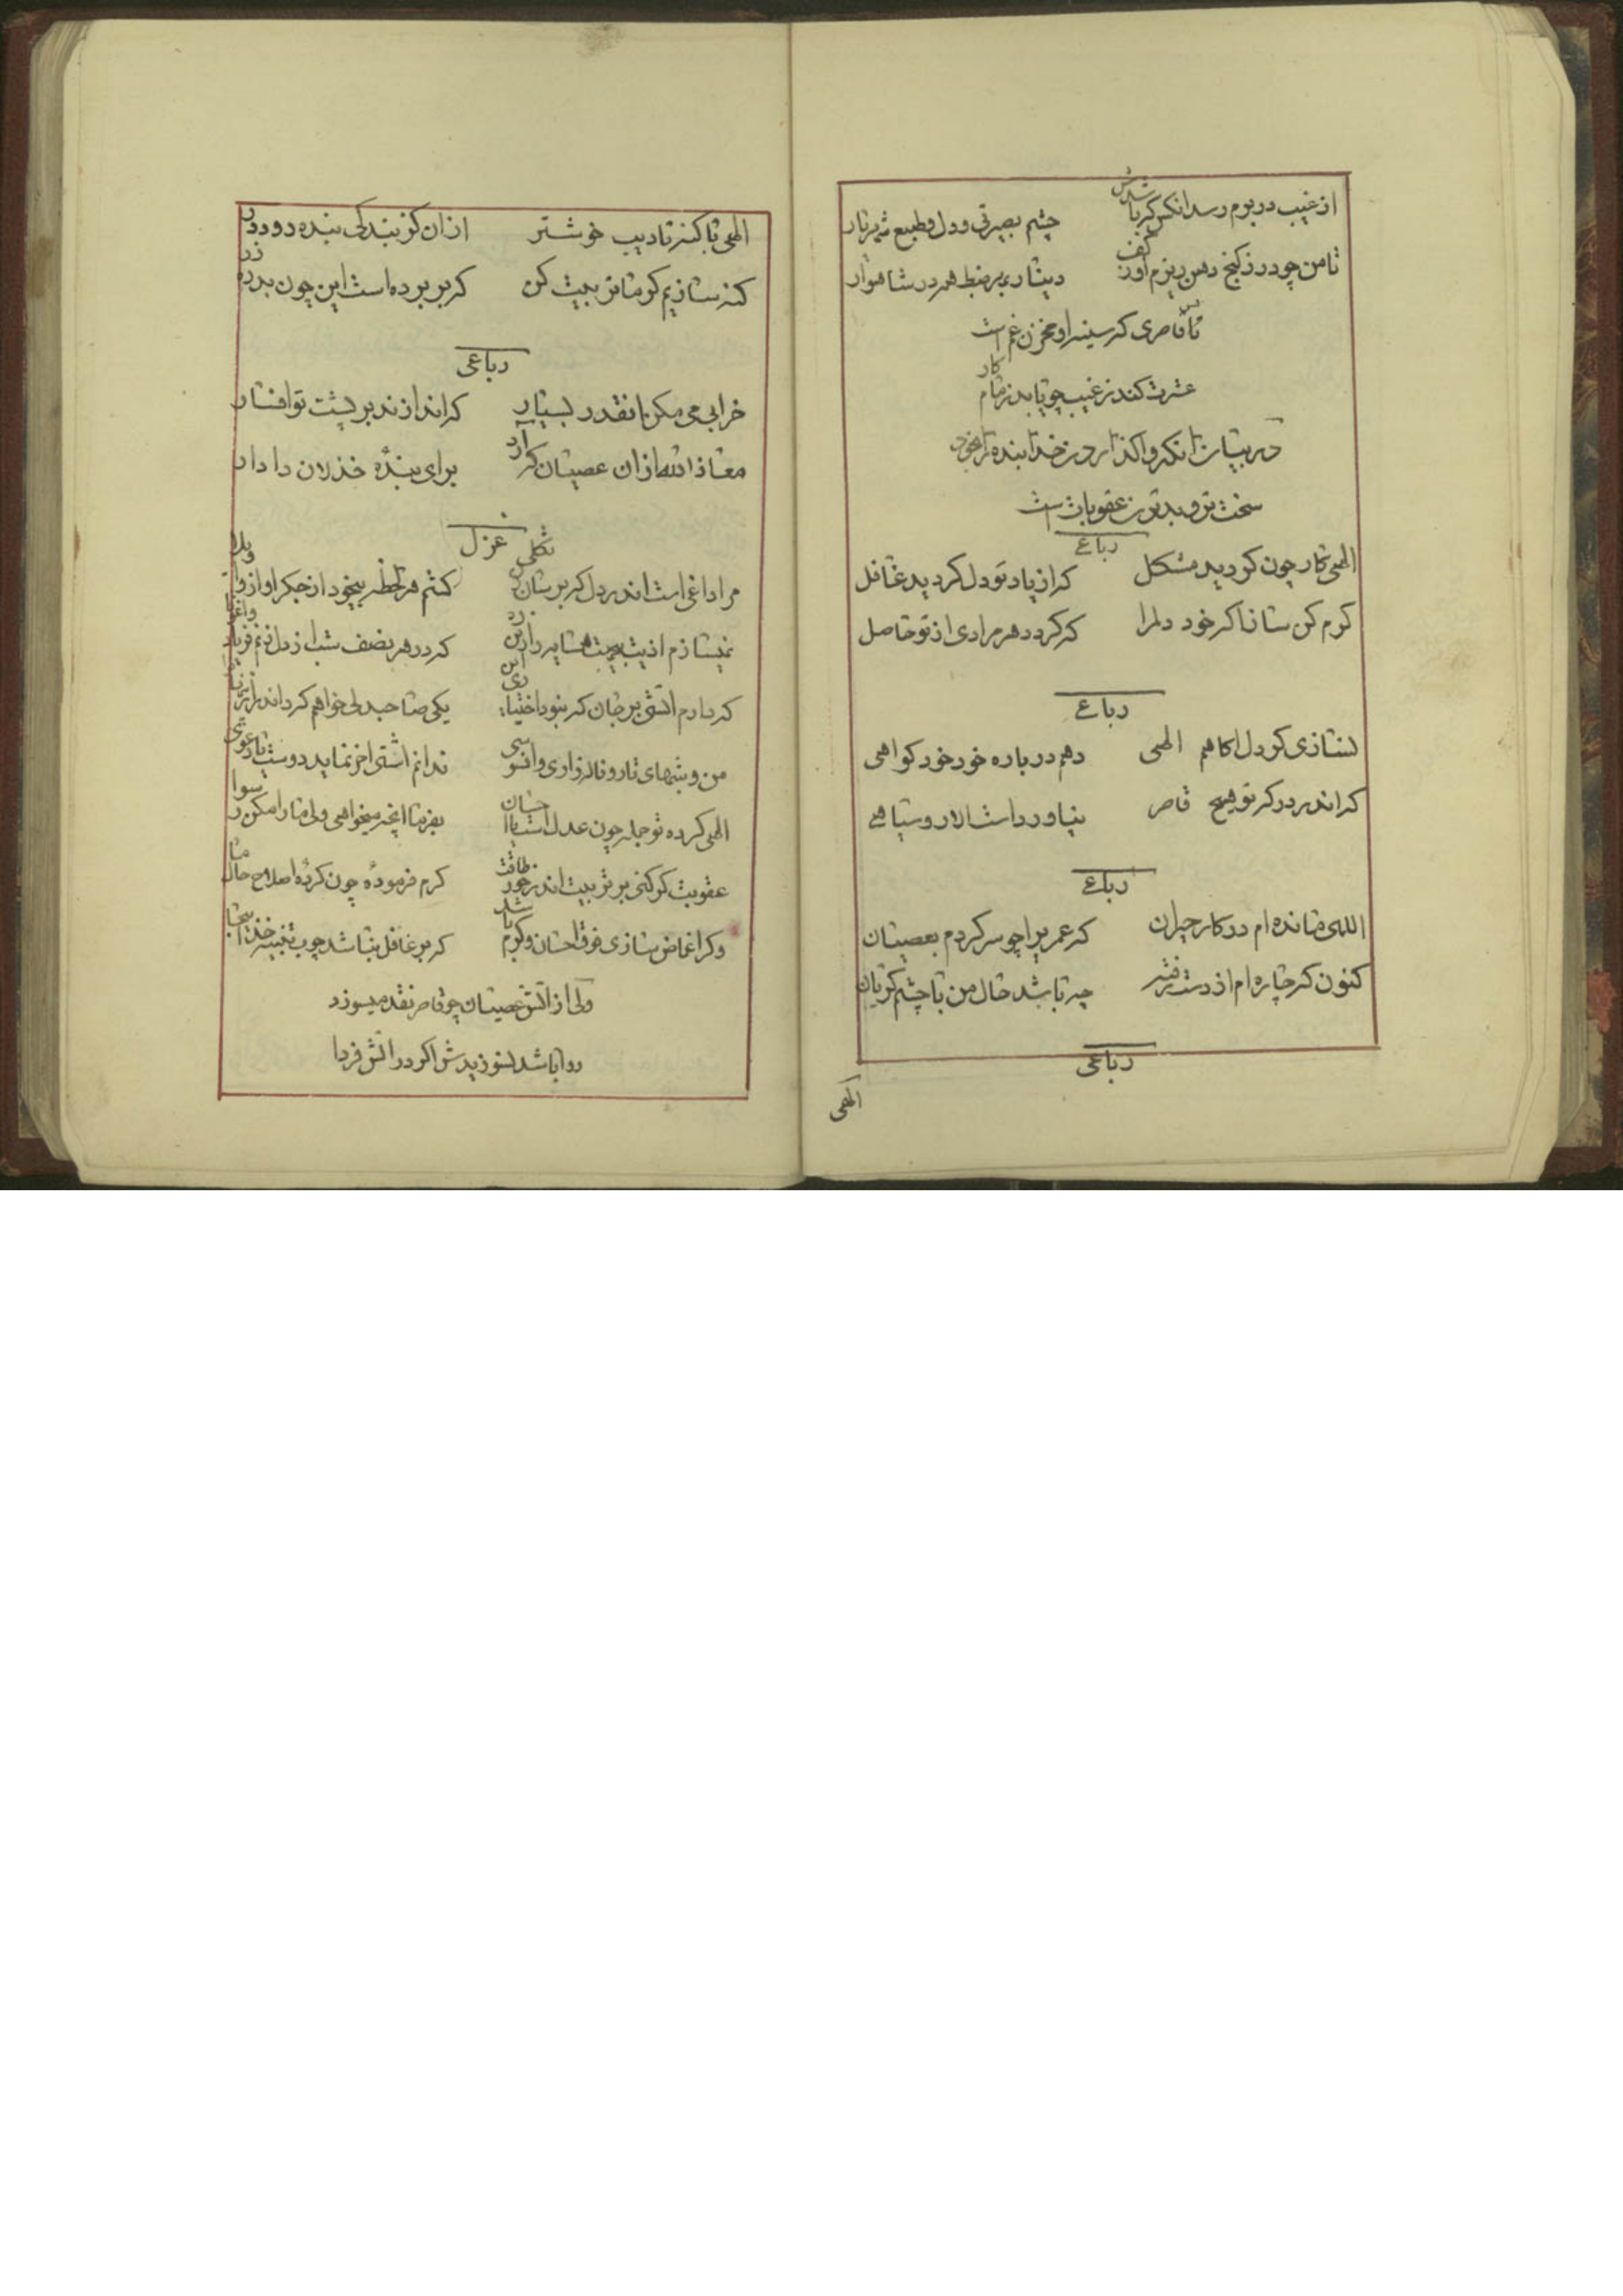 از غیب در برم رسد انکس که باشدش
چشم بصیرتی و دل و طبیع
تا من چو در ز کنج دهن ریزم او ز کف
دیناری بر ضبط همه در شاهوار
قاصری که سینه او مخزن غم است
عشرت کند ز غیب چو یابد
در بیان انکه واکذاردن خدا بنده را بخود
سخت تر و بدترین عقوبات است
رباعی
الهی کار چون کردید مشکل
که از یاد تو دل کردید غافل
کرم کن ساز ذاکر خود دلم را
که کردد هر مرادی از تو حاصل
رباعی
نسازی کر دل اکاهم الهی
دهم در باره خود خود کواهی
که اندر درکه تو هیچ قاصر
نیاورد است الا رو سیاهی
رباعی
اللهی مانده ام در کار حیران
که عمر را چو سر کردم بعصیان
کنون که چاره ام از دست رفته
چه باشد حال من با چشم کریان
رباعی
الهی
الهی با کنه تادیب خوشتر
از ان کز بندکی بنده رود در
کنه سازیم کر ما تربیت کن
که بربرده است این چون بدر در
رباعی
خرابی می مکن انقدر بسیار
که اندازند بر پشت تو افسار
معاذالله از ان عصیان که ارد
برای بنده خذلان دادار
غزل
مرا داغی است اندر دل که بر
کشم هر لحظه بیخود از جکر اواز واویلا
نمیسازم اذیت
که در هر نصف شب از دل زنم فریاد
که دارم اتشی بر جان که نبود اختیار
یکی صاحبدلی خواهم که داند
من و شبهای تار و ناله زاری و
ندانم اشتی اخر نماید دوست با
الهی کرده تو جمله چون عدل است یا احسان
بفرما انچه میخواهی ولی ما را مکن رسوا
عقوبت کر کنی بر تربیت اندر خور طاقت
کرم فرموده چون کرده اصلاح حال ما
وکر اغماض سازی فوق احسان و کرم باشد
که بر غافل نباشد چوب تنبیه خدا
ولی از اتش عصیان چو قاصر نقد میسوزد
روا باشد نسوزیدش اکر در اتش فردا